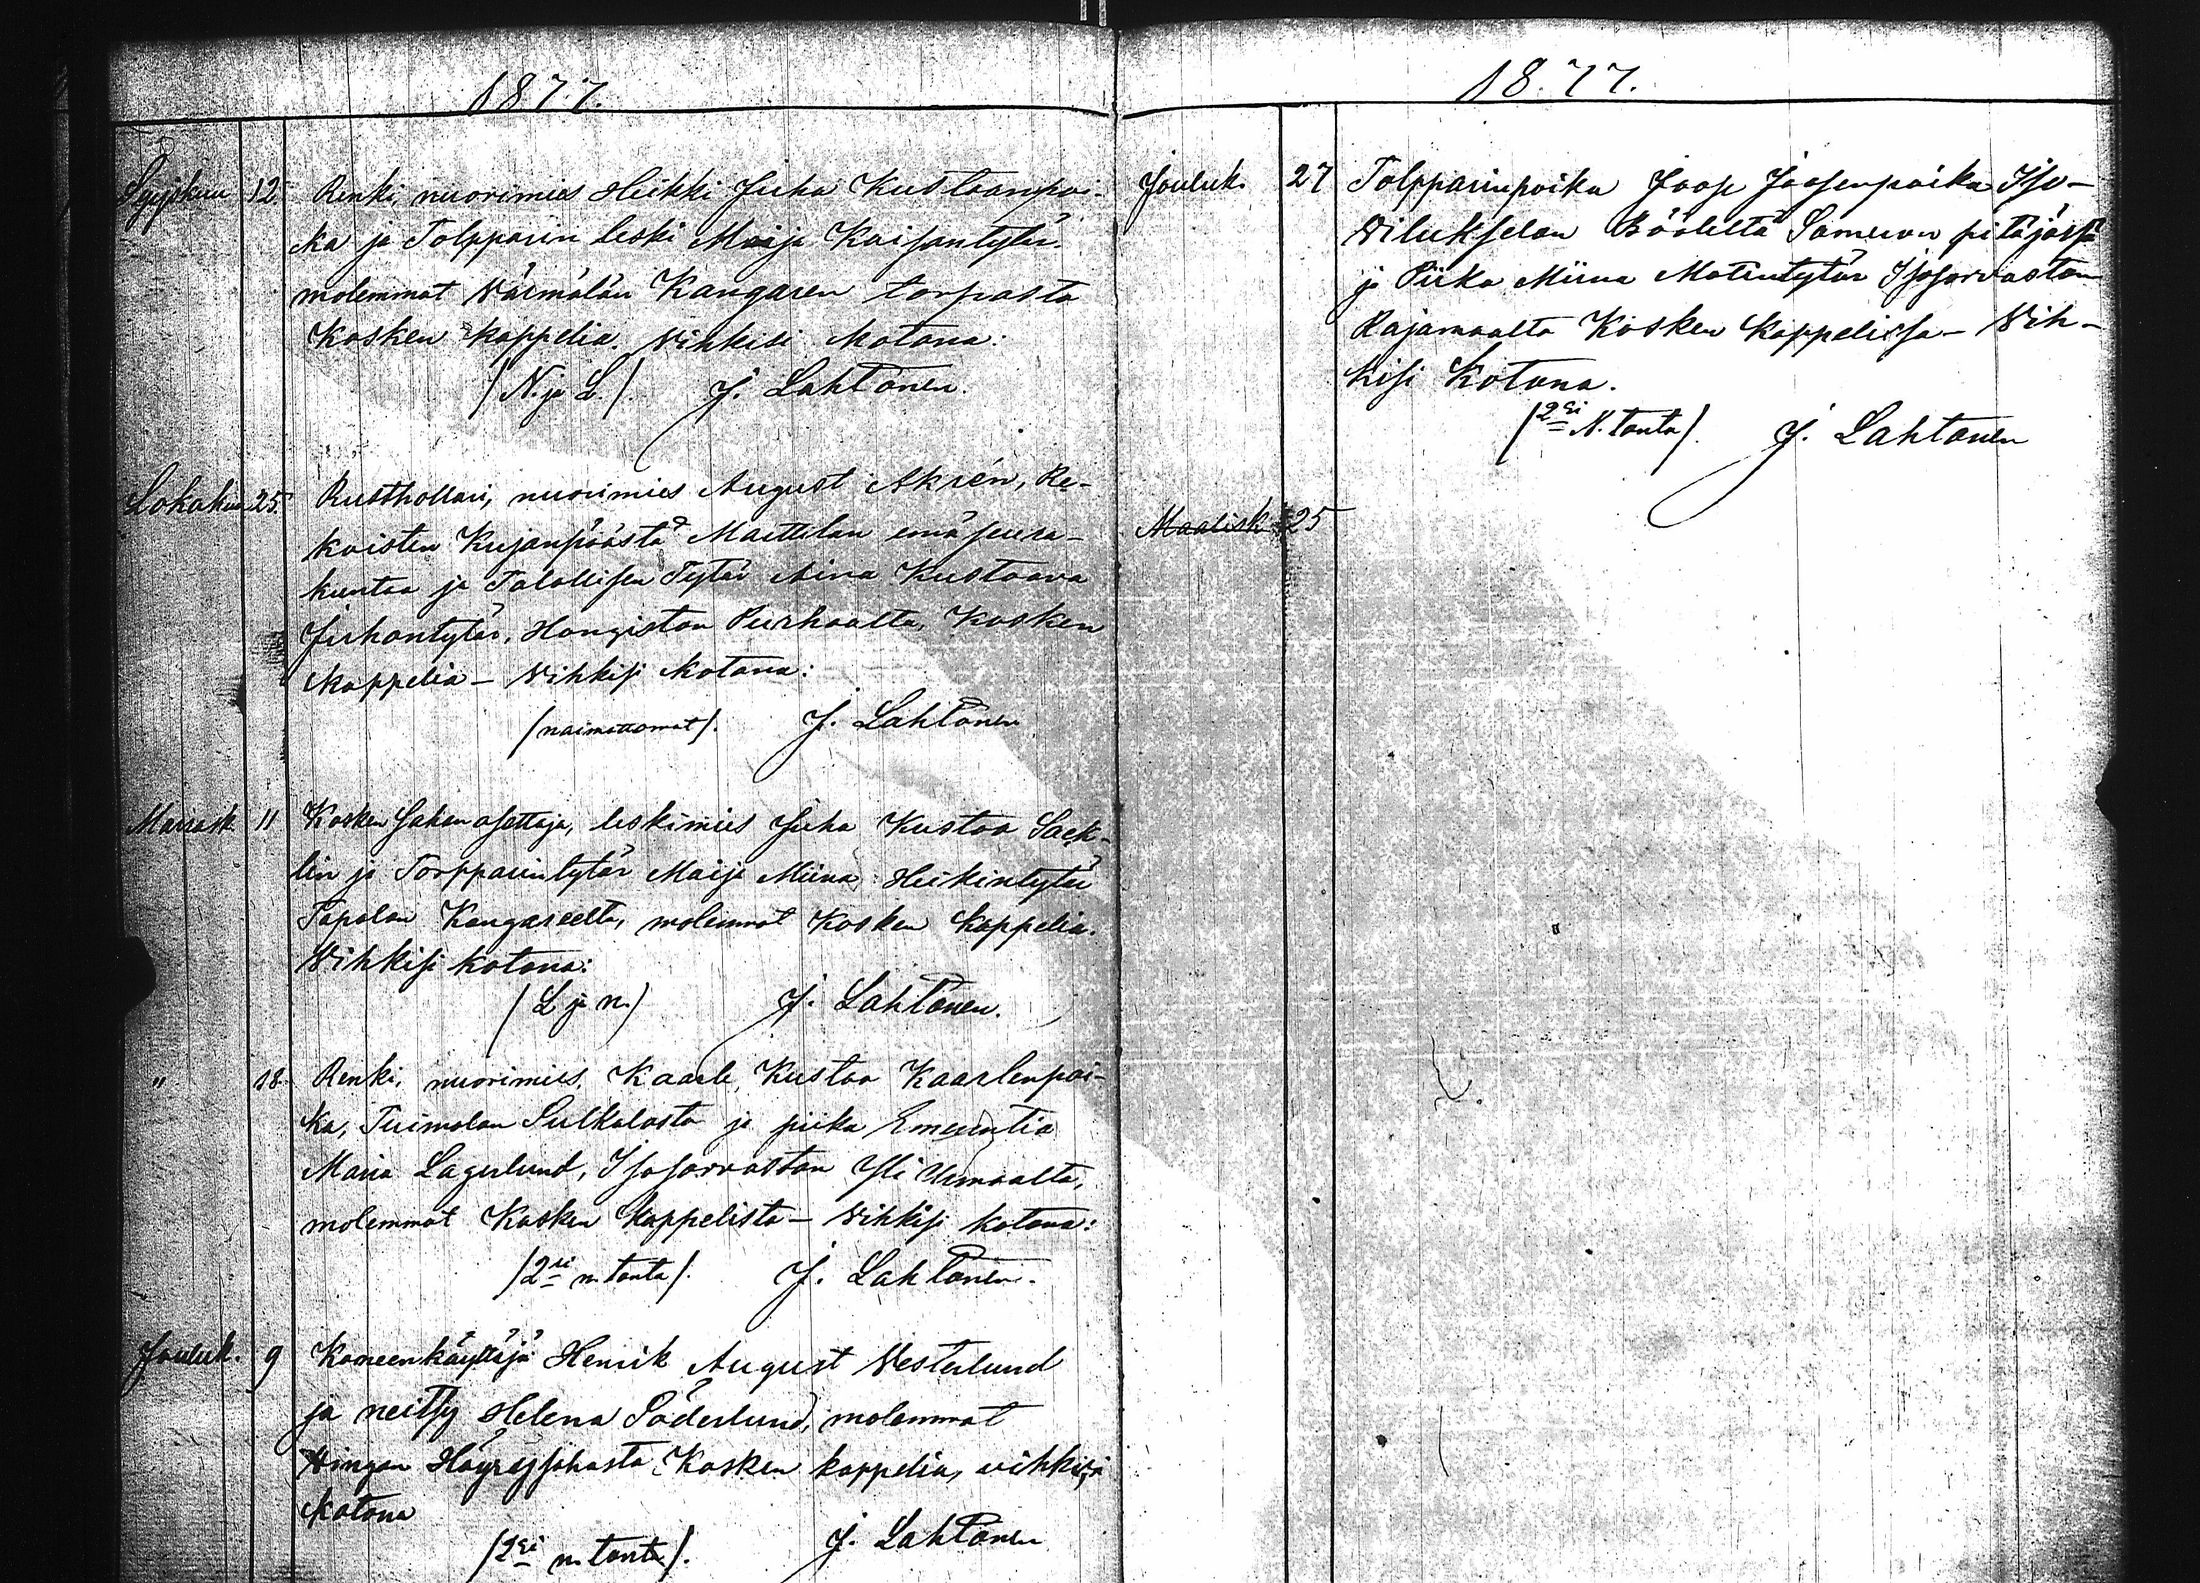 1877.
Syyskuu 12. Renki, nuorimies Heikki Juha Kustaanpoi-
ka ja Tolpparin leski Maija Kaisantytär
molemmat Wärmälän Kangaren torpasta
Kosken kappelia. Wihkisi kotona:
/N. ja L./ J. Lahtonen.
Lokakuu 25. Rusthollari, nuorimies August Akrén, Re-
koisten Kujanpäästä Marttilan emäseura-
kuntaa ja Talollisen Tytär Aina Kustaava
Juhantytär, Hongiston Purhaalta, Kosken
kappelia – Wihkisi kotona:
/naimattomat/. J. Lahtonen
Marrask. 11 Kosken Sahan asettaja, leskimies Juha Kustaa Sack-
lin ja Torpparintytär Maija Miina Heikintytär
Tapalan Kangareelta, molemmat Kosken kappelia.
Wihkisi kotona:
/L ja n./ J. Lahtonen.
" 18. Renki, nuorimies, Kaarle Kustaa Kaarlenpoi-
ka, Tuimalan Sulkalasta ja piika Emerentia
Maria Lagerlund, Isosorvaston Yli Urmaalta,
molemmat Kosken kappelista – Wihkisi kotona:
/2si n. tonta/. J. Lahtonen.
Jouluk. 9 Koneenkäyttäjä Henrik August Westerlund
ja neitsy Helena Söderlund, molemmat
Wingan Höyrysahasta Kosken kappelia, vihkisi
kotona
/2si n. tonta/. J. Lahtonen
1877.
Jouluk. 27 Tolpparinpoika Joose Joosenpoika Iso-
Wilukselan Bööleltä Sameron pitäjässä
ja Piika Miina Matintytär Isosorvaston
Rajamaalta Kosken Kappelissa – Wih-
kisi Kotona.
/2si N. tonta/. J. Lahtonen
Maalisk 25